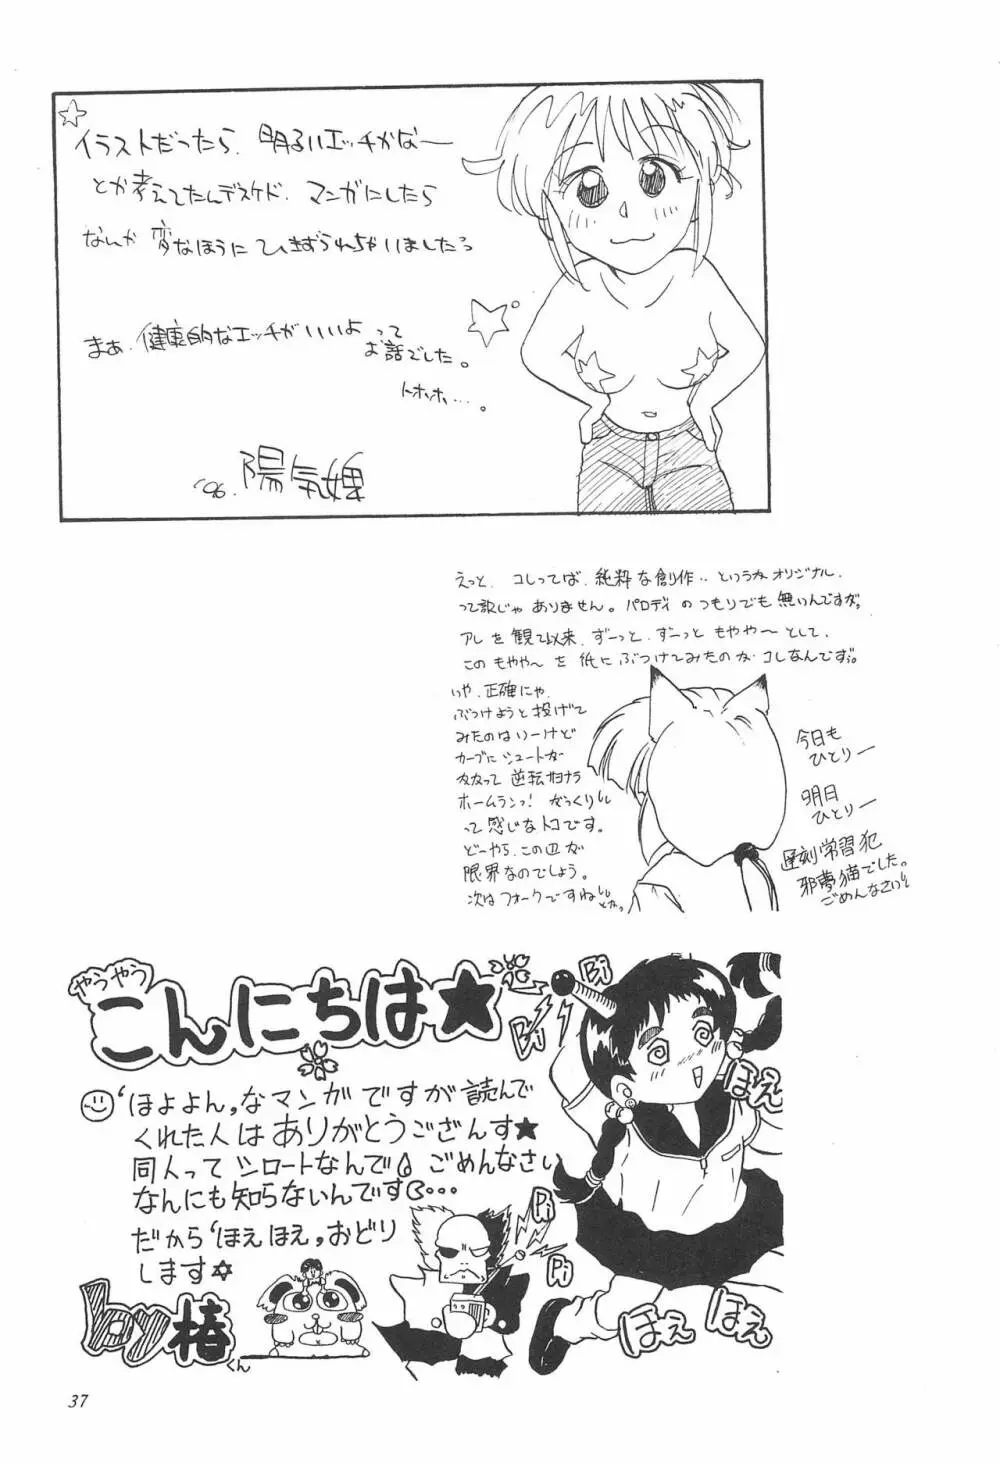 イラストだったら、明るいエッチかな〜
とか考えてたんデスケド、マンガにしたら
なんか 変なほうに ひきずられちゃいましたっ
まぁ、健康的なエッチがいいよって
お話でした。
トホホ…。
'96. 陽気婢
えっと、コレってば、純粋な創作‥というかオリジナル、
って訳じゃ ありません。パロディ のつもりでも 無いんですが。
アレ を観て以来、ずーっと、ずーっと もやや〜 として、
この もやや〜 を 紙に ぶつけてみたのが コレなんですぅ。
いや、正確にゃ、
ぶつけようと投げて
みたのはいーけど
カーブにシュートが
なって 逆転サヨナラ
ホームランっ! がっくりぃ
って 感じなトコです。
どーやら、この辺が
限界なのでしょう。
次はフォークですねぃ
とかっ
今日も
ひとりー
明日
ひとりー
遅刻常習犯
邪夢猫でした。
ごめんなさいぃ
やうやう
こんにちは★
'ほよよん,なマンガですが読んで
くれた人はありがとうござんす★
同人って シロートなんで ごめんなさい
なんにも知らないんです…
だから'ほえほえ,おどり
します☆
by 椿くん
Bi
Bi
Pi
Pi
ほえ
ほえ
ほえ
37